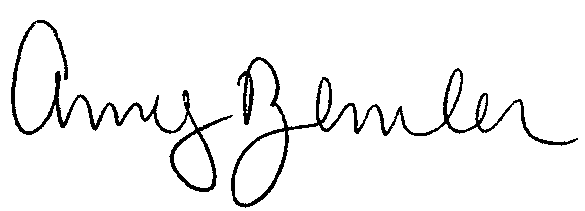 Amy Bemler